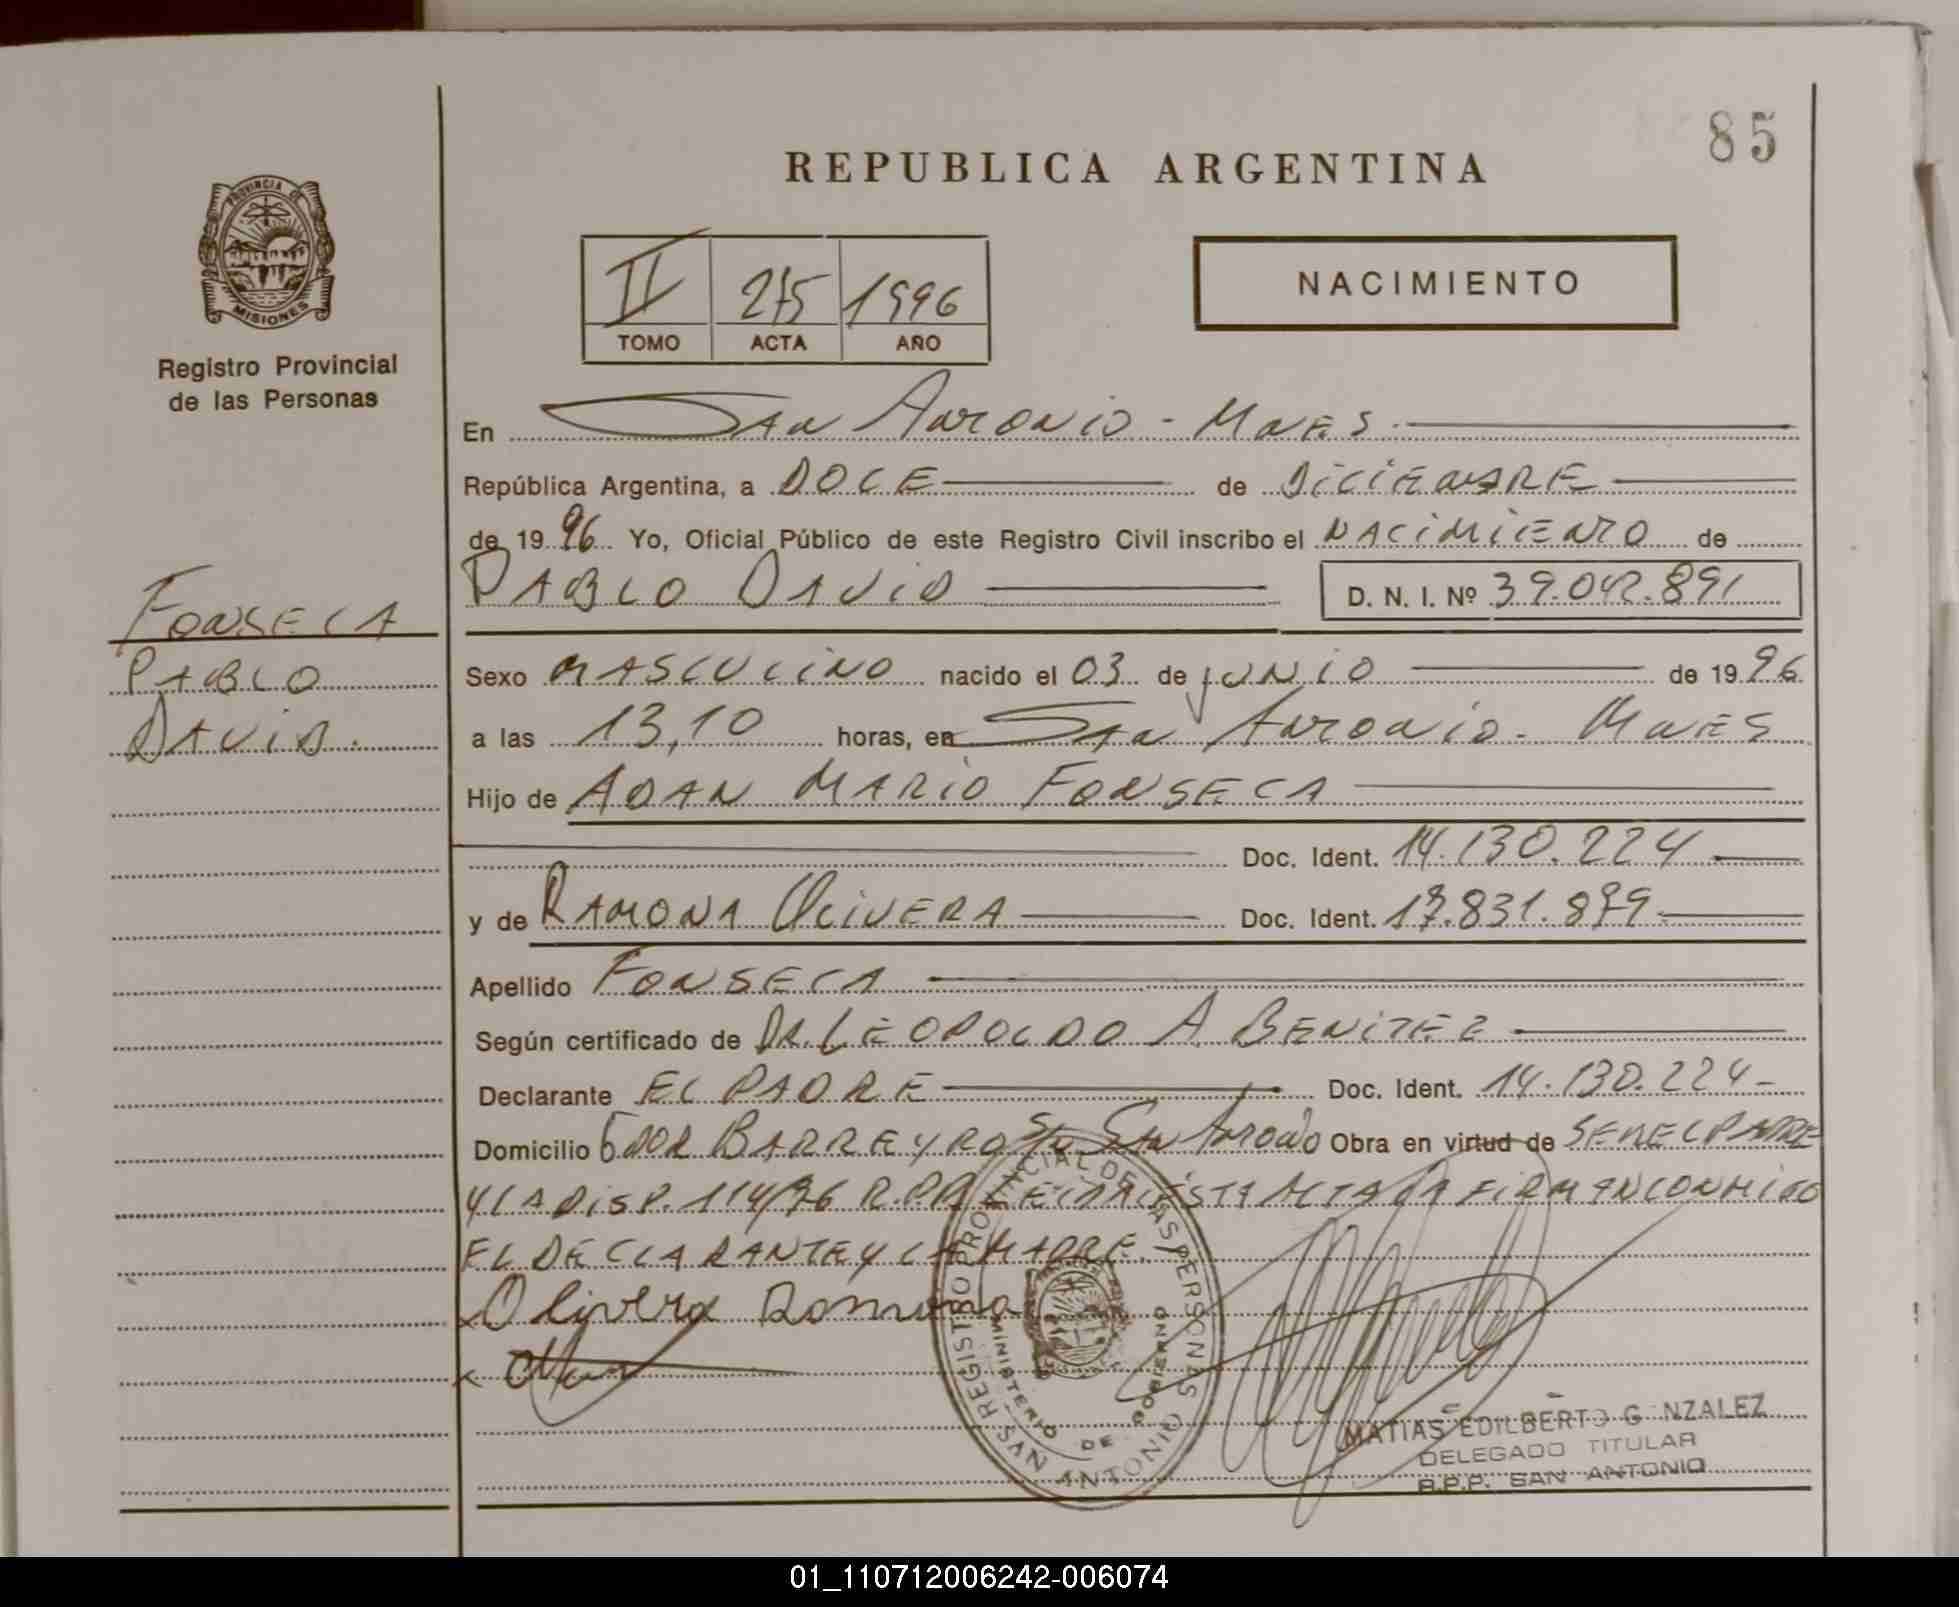 85
REPUBLICA ARGENTINA
PROVINCIA DE
MISIONES
Registro Provincial
de las Personas
II 275 1996
TOMO ACTA AÑO
NACIMIENTO
En San Antonio - Mnes.
República Argentina, a DOCE de Diciembre
de 1996 Yo, Oficial Público de este Registro Civil inscribo el NACIMIENTO de
PABLO DAVID D. N. I. Nº 39.042.891
FONSECA
PABLO
DAVID.
Sexo MASCULINO nacido el 03 de JUNIO de 1996
a las 13,10 horas, en San Antonio - Mnes
Hijo de ADAN MARIO FONSECA
Doc. Ident. 14.130.224
y de RAMONA OLIVERA Doc. Ident. 17.831.879
Apellido FONSECA
Según certificado de DR. LEOPOLDO A BENITEZ
Declarante EL PADRE Doc. Ident. 14.130.224-
Domicilio BARREYRO San Antonio Obra en virtud de SER EL PADRE
Y LA DISP. 114/96 R.P.P. ESTA ACTA LA FIRMAN CONMIGO
EL DECLARANTE Y LA MADRE.
Olivera Ramona
REGISTRO PROVINCIAL DE LAS PERSONAS
MINISTERIO DE GOBIERNO
SAN ANTONIO
MATIAS EDILBERTO G NZALEZ
DELEGADO TITULAR
R.P.P. SAN ANTONIO
01_110712006242-006074